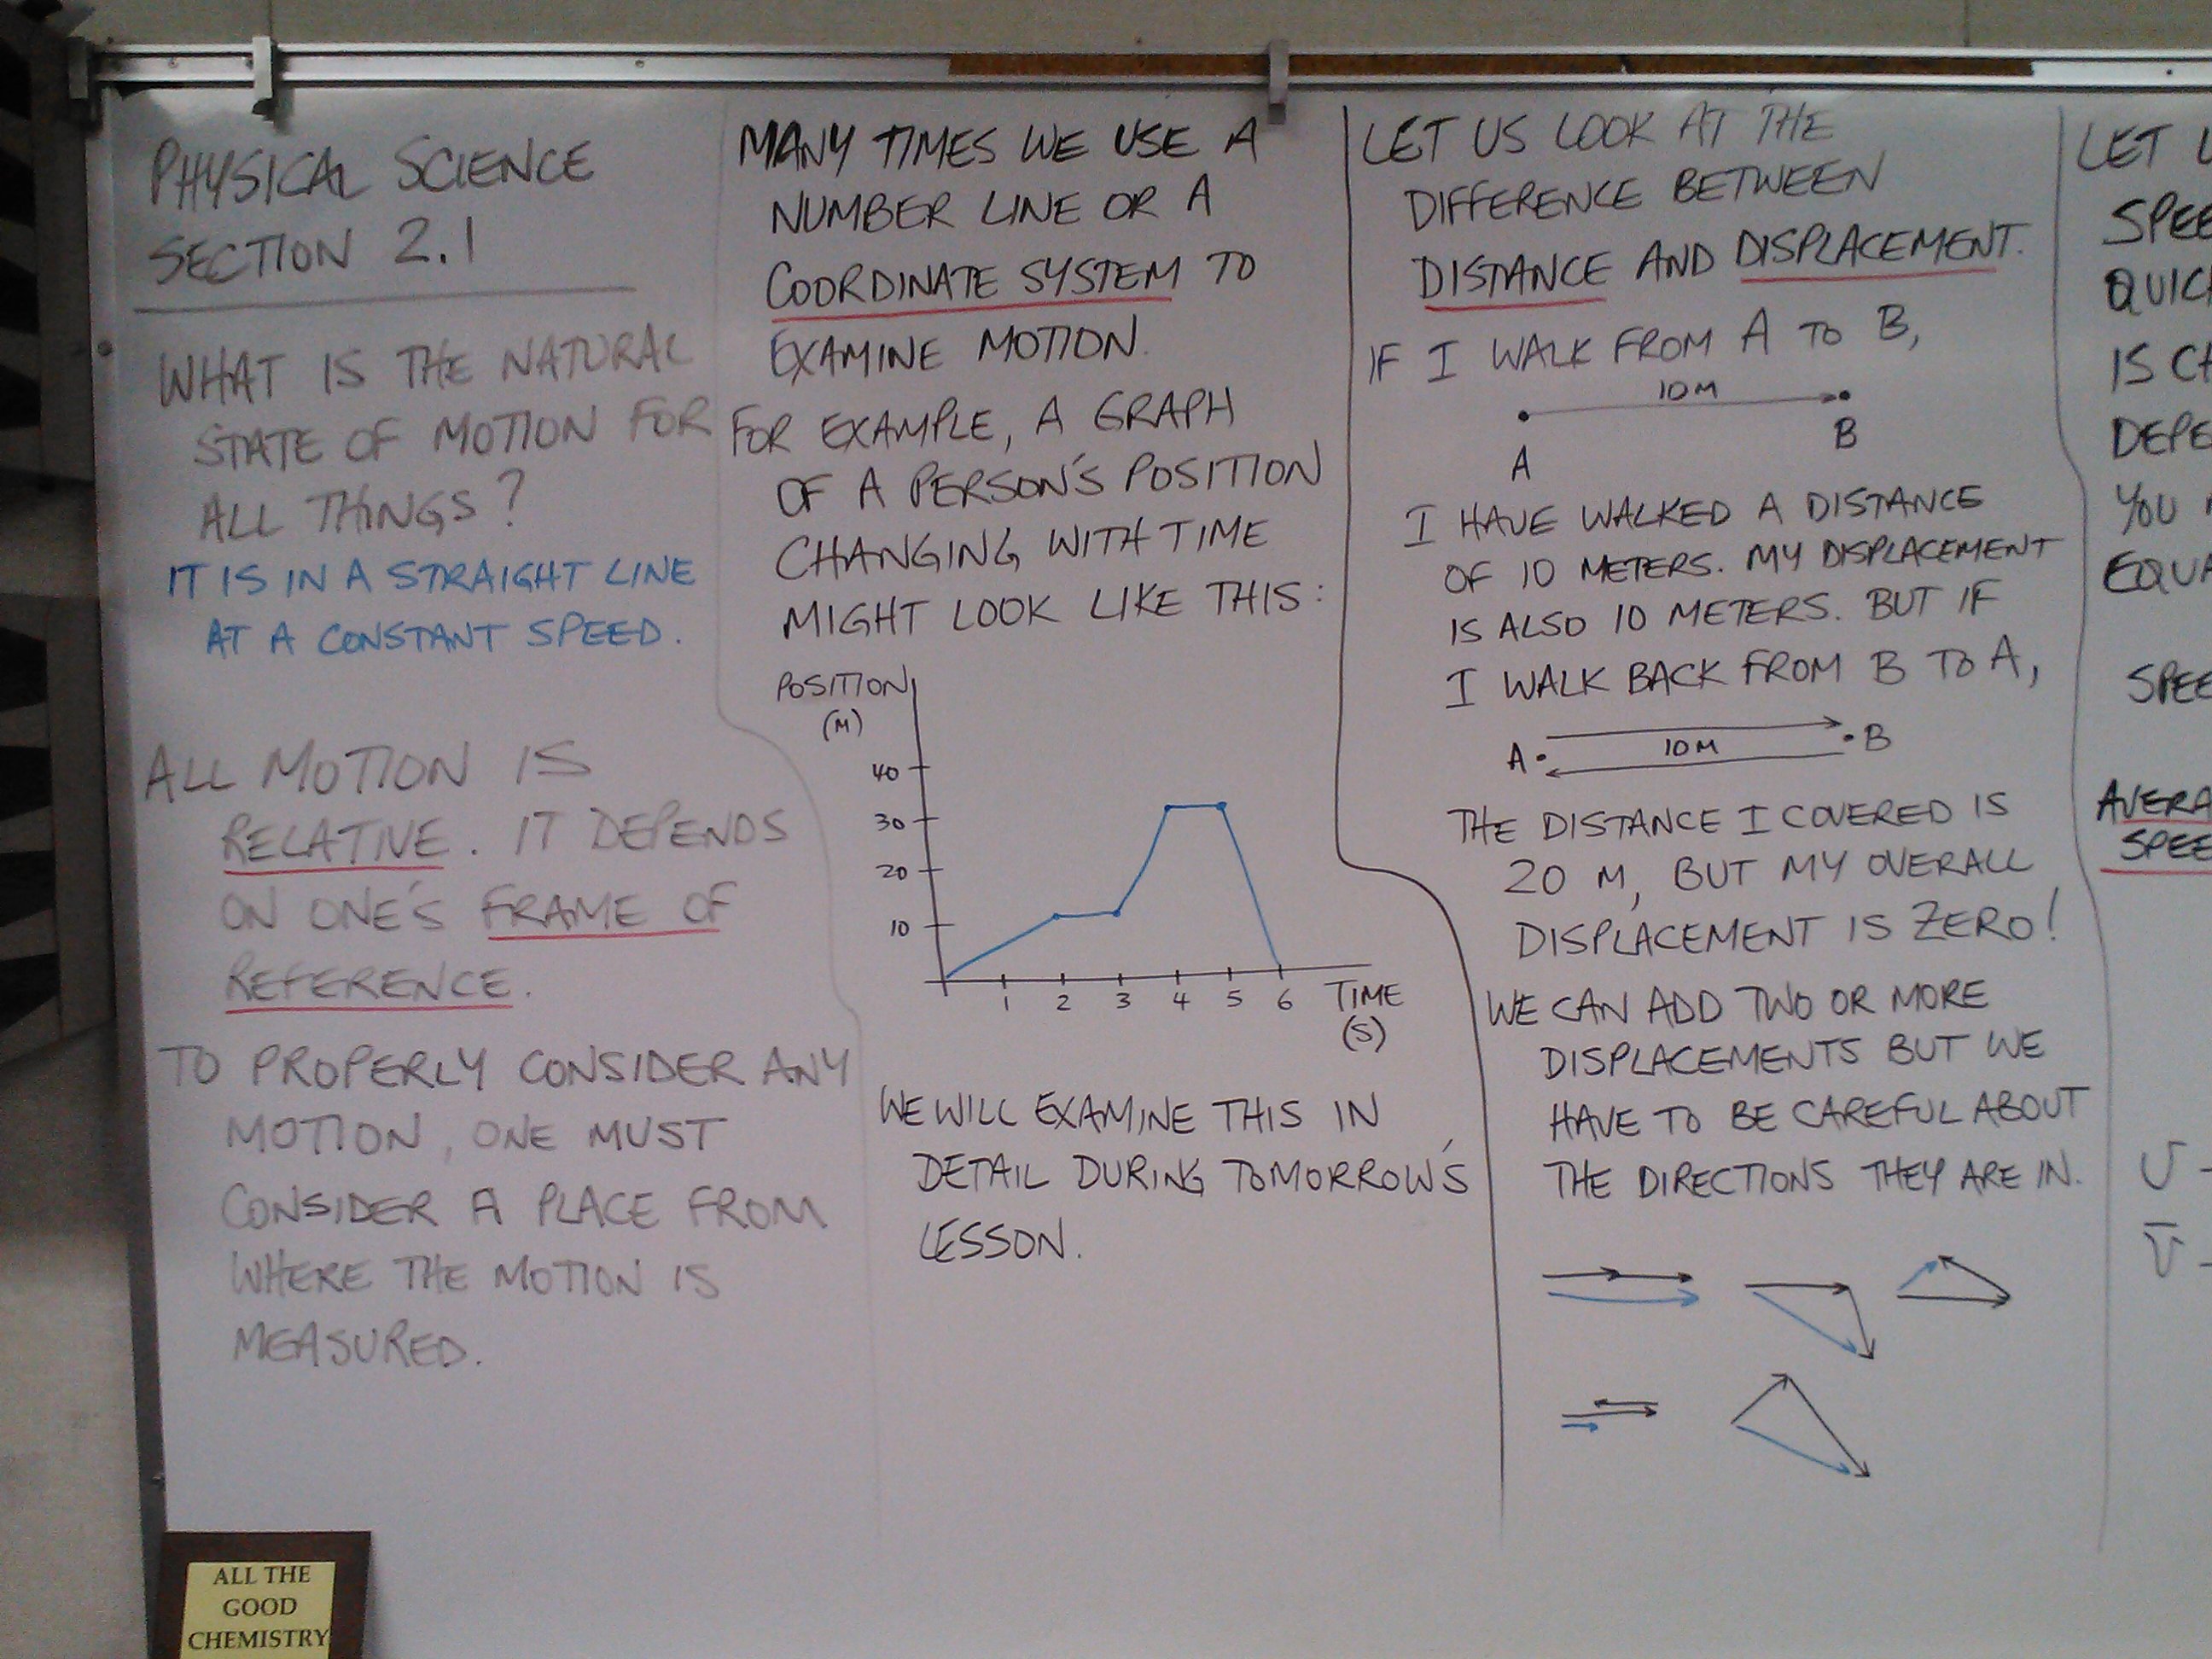 PHYSICAL SCIENCE
SECTION 2.1
WHAT IS THE NATURAL
STATE OF MOTION FOR
ALL THINGS?
IT IS IN A STRAIGHT LINE
AT A CONSTANT SPEED.
ALL MOTION IS
RELATIVE. IT DEPENDS
ON ONE'S FRAME OF
REFERENCE.
TO PROPERLY CONSIDER ANY
MOTION, ONE MUST
CONSIDER A PLACE FROM
WHERE THE MOTION IS
MEASURED.
MANY TIMES WE USE A
NUMBER LINE OR A
COORDINATE SYSTEM TO
EXAMINE MOTION.
FOR EXAMPLE, A GRAPH
OF A PERSON'S POSITION
CHANGING WITH TIME
MIGHT LOOK LIKE THIS:
POSITION
(M)
40
30
20
10
1 2 3 4 5 6 TIME
(S)
WE WILL EXAMINE THIS IN
DETAIL DURING TOMORROW'S
LESSON.
LET US LOOK AT THE
DIFFERENCE BETWEEN
DISTANCE AND DISPLACEMENT.
IF I WALK FROM A TO B,
10 M
A B
I HAVE WALKED A DISTANCE
OF 10 METERS. MY DISPLACEMENT
IS ALSO 10 METERS. BUT IF
I WALK BACK FROM B TO A,
A 10 M B
THE DISTANCE I COVERED IS
20 M, BUT MY OVERALL
DISPLACEMENT IS ZERO!
WE CAN ADD TWO OR MORE
DISPLACEMENTS BUT WE
HAVE TO BE CAREFUL ABOUT
THE DIRECTIONS THEY ARE IN.
LET
SPEE
QUIC
IS
DEPE
YOU
EQUA
SPEE
AVERA
SPEE
ALL THE
GOOD
CHEMISTRY